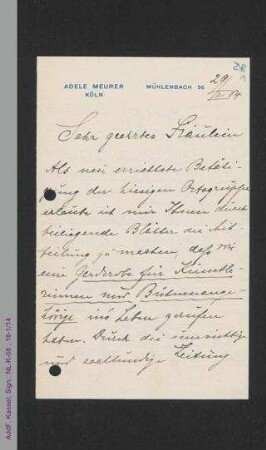 ADELE MEURER
KÖLN
MÜHLENBACH 56
29/
Sehr geehrtes Fräulein
Als neu errichtete Betäti-
gung der hiesigen Ortsgruppe
erlaube ich mir Ihnen durch
beiliegende Blätter die Mit-
teilung zu machen, daß wir
eine Garderobe für Künstle-
rinnen und Bühnenange-
hörige ins Leben gerufen
haben. Durch die umsichtige
und Leitung
AddF, Kassel, Sign. NL-K-08 ; 18-1/14